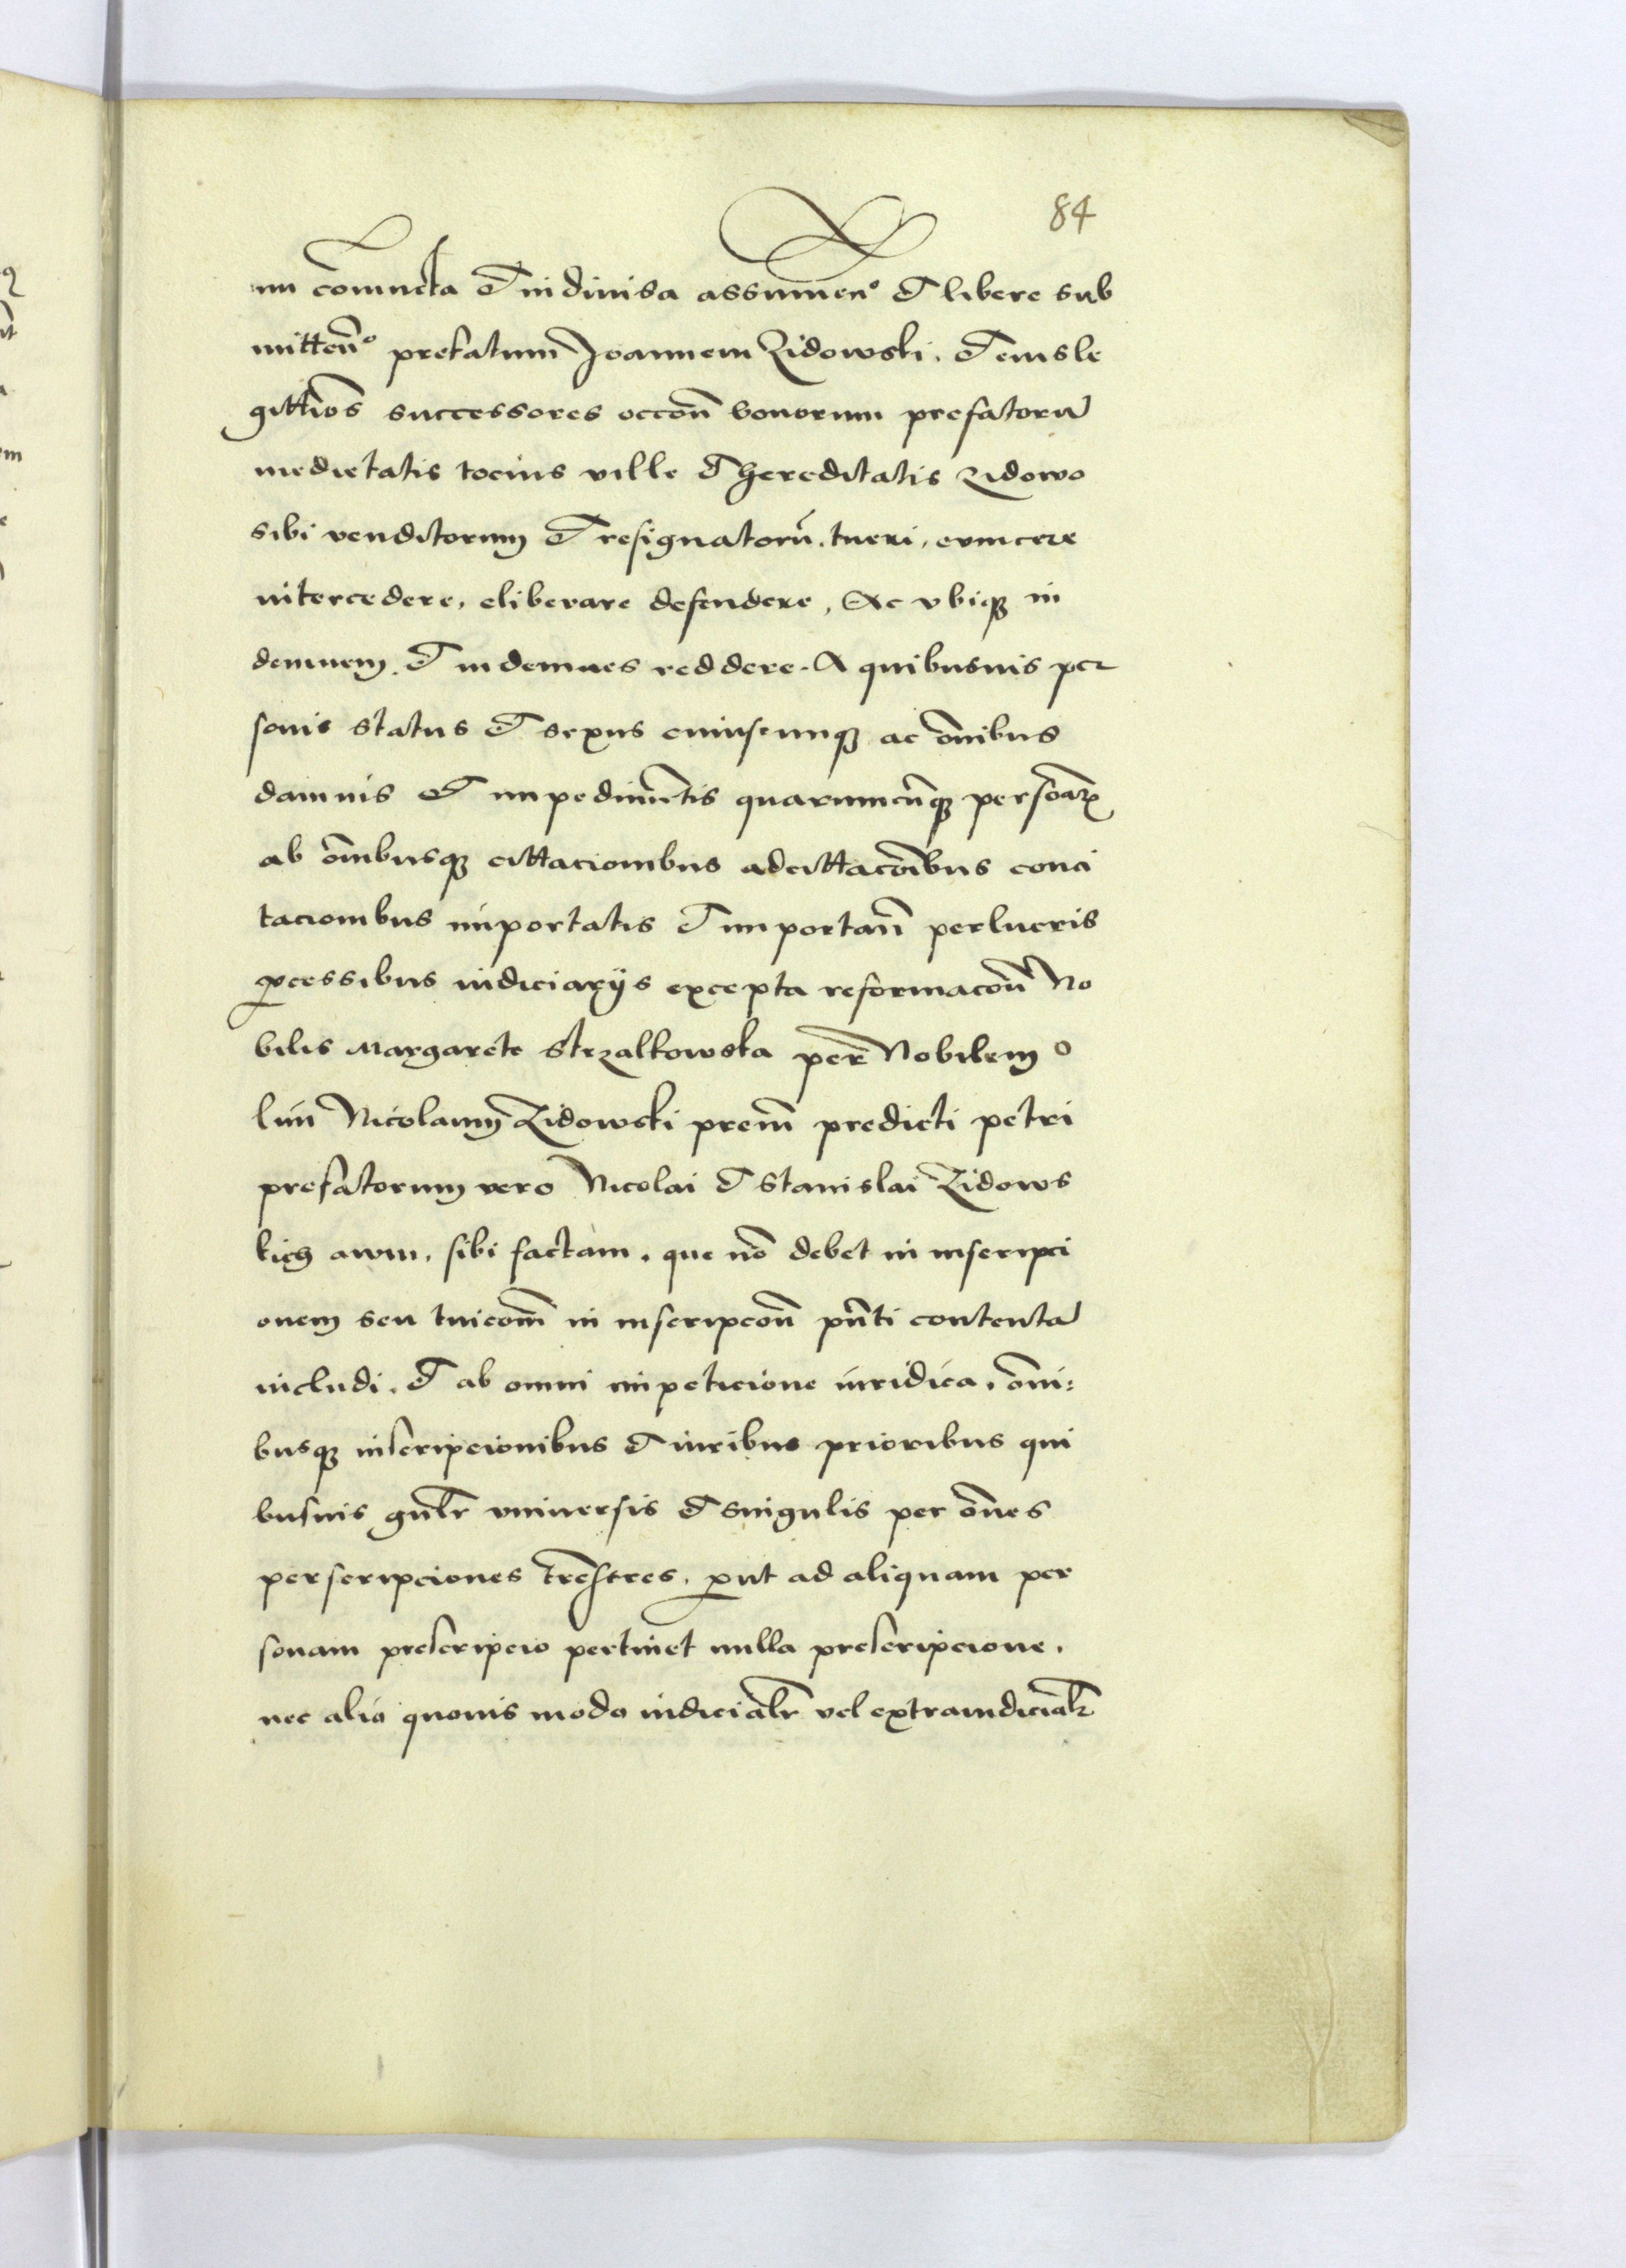 84
nu coniuncta et indiuisa assumen° et libere sub
mitten° prefatum Joannem Zidowski. et eius le
gittios successores occon bonorum prefatorū
medietatis tocius ville et hereditatis Zidowo
sibi venditorum et resignatorū. tueri. euincere
intercedere. eliberare defendere, Ac vbiqꝫ in
demnem. et indemnes reddere. A quibusuis per
sonis status et sexus cuiuscunqꝫ ac oibus
damnis et impedimētis quarumcūqꝫ persoarꝫ
ab oibusqꝫ cittacionibus adcittacoibus conci
tacionibus importatis et importan perlucris
ꝓcessibus iudiciarijs excepta reformacon No
bilis Margarete Strzalkowska per Nobilem o
lim Nicolaum Zidowski prem predicti petri
prefatorum vero Nicolai et Stanislai Zidows
kich awm. sibi factam. que nō debet in inscripci
onem seu tuicom in inscripcon pnti contentā
includi. et ab omni impeticione iuridica. omi:
busqꝫ inscripcionibus et iuribus prioribus qui
busuis gnlr vniuersis et singulis per ones
perscripciones trestres. ꝓut ad aliquam per
sonam prescripcio pertinet nulla prescripcione.
nec alio quouis modo iudicialr vel extraiudicialr